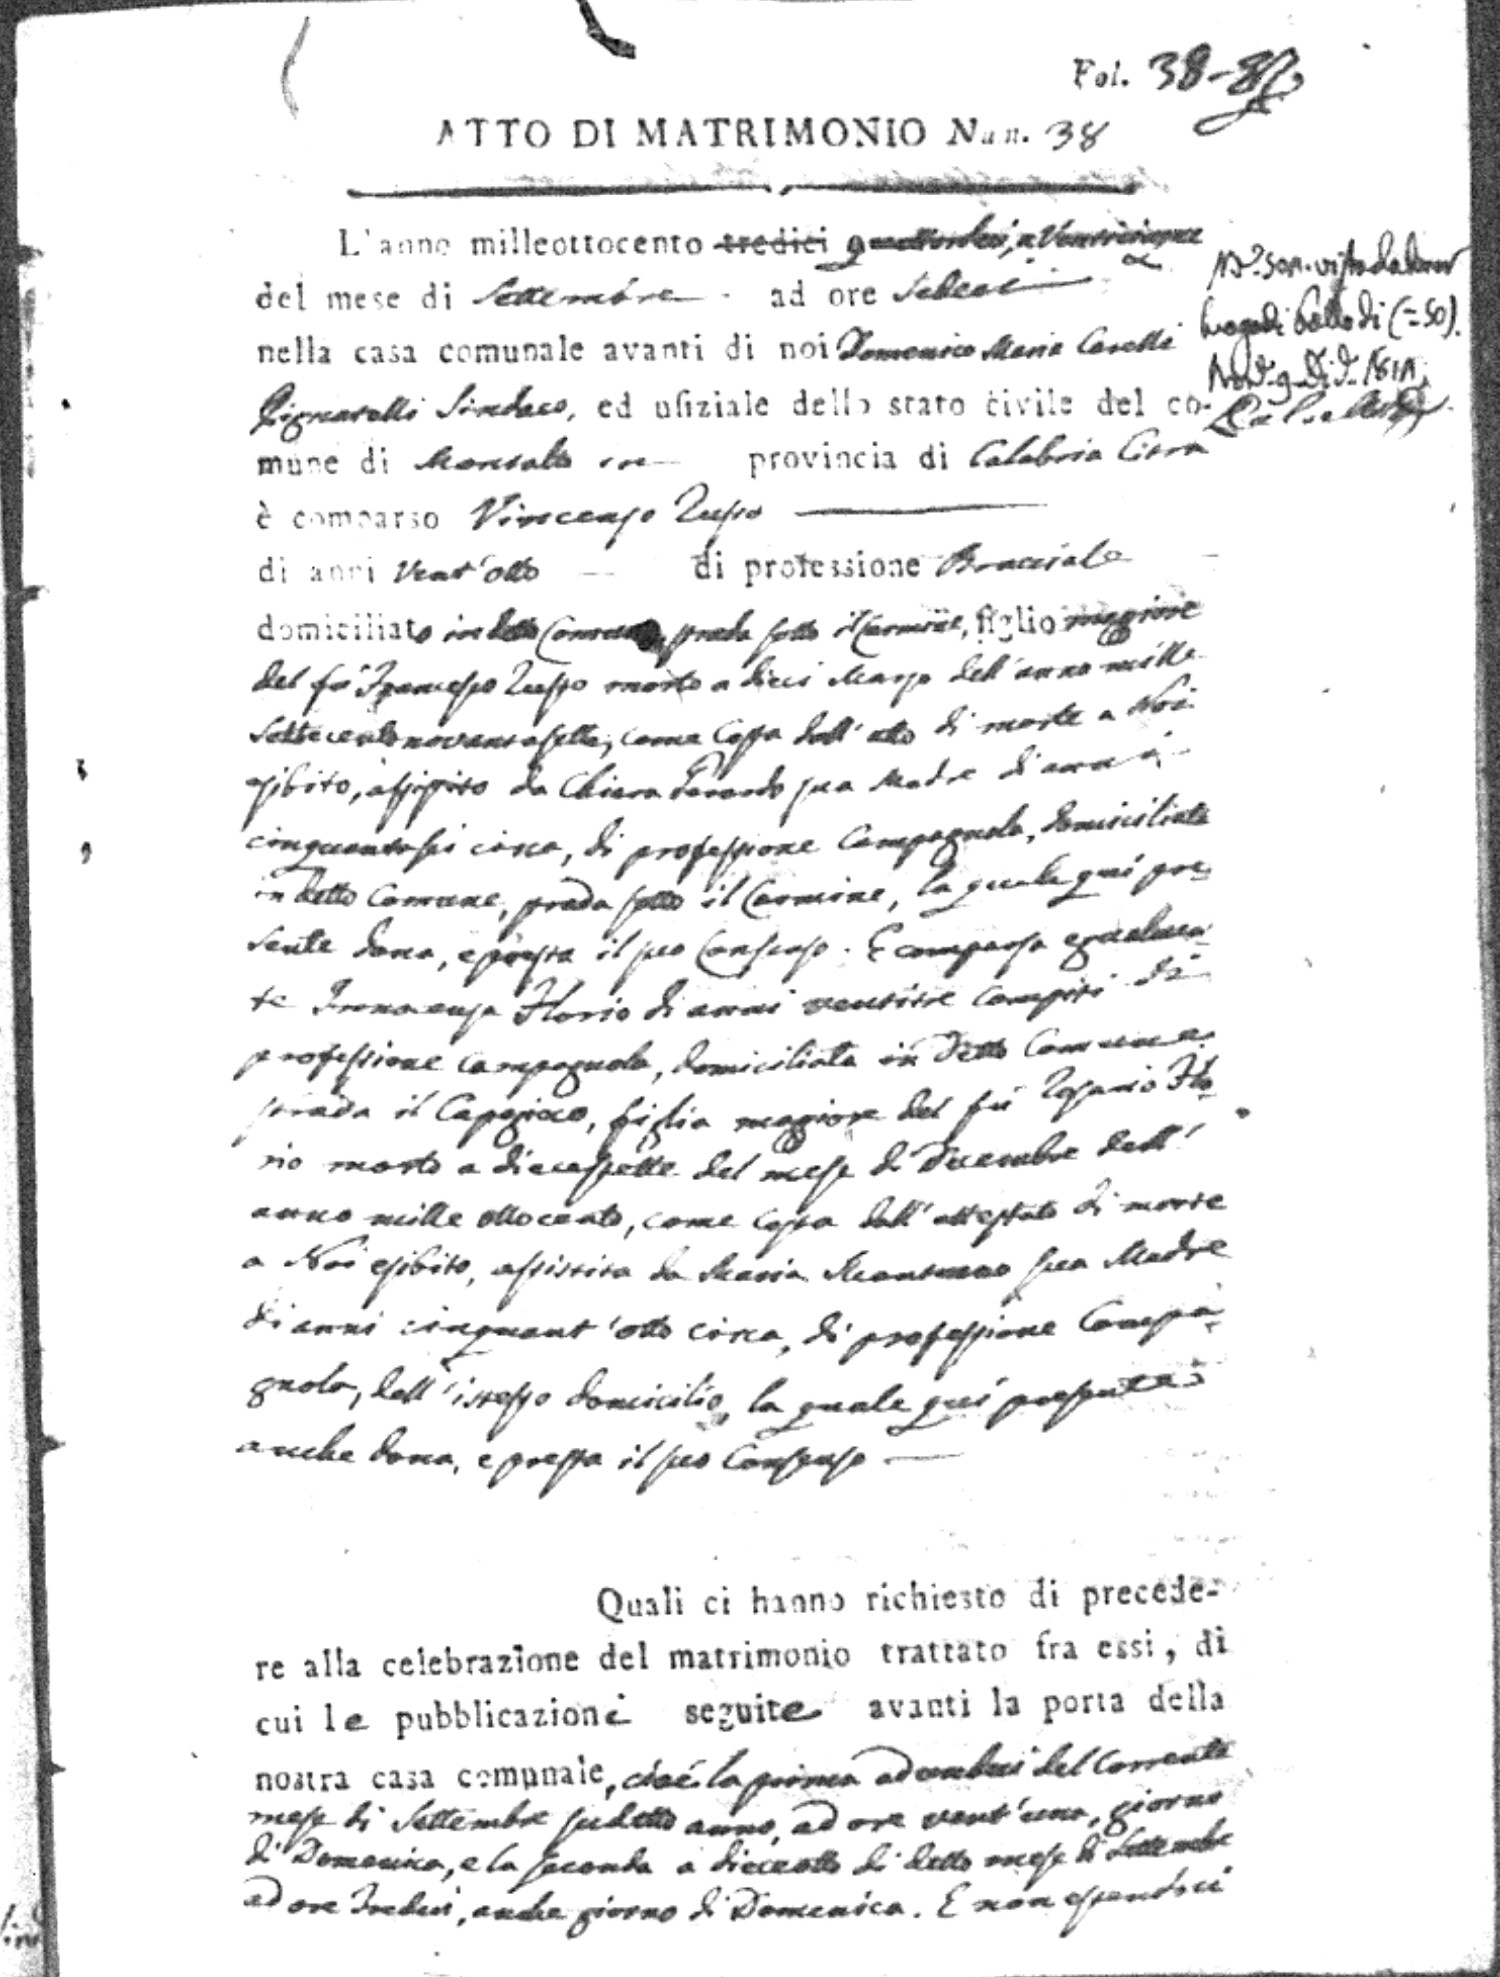 Fol. 38-
ATTO DI MATRIMONIO Num. 38
L'anno milleottocento tredici quattordici, a Venticinque
del mese di Settembre ad ore Sedeci
nella casa comunale avanti di noi Domenico Maria Caselli
Pignatelli Sindaco, ed ufiziale dello stato civile del co-
mune di Montalto provincia di Calabria Citra
è comparso Vincenzo Zupo
di anni Vent'otto di professione Bracciale
domiciliato in detto Comune, strada sotto il Carmine, figlio maggiore
del fu Francesco Zupo morto a dieci Marzo dell'anno mille
settecento novantasette, come costa dall'atto di morte a Noi
esibito, assistito da Chiara sua Madre di anni
cinquantasei circa, di professione Campagnola, domiciliata
in detto Comune, strada sotto il Carmine, la quale quì pre-
sente dona, e presta il suo Consenso. E comparsa egualmen-
te Innocenza Florio di anni ventitre compiti di
professione Campagnola, domiciliata in detto Comune
strada il figlia maggiore del fu Rosario Flo-
rio morto a diecessette del mese di Decembre dell'
anno mille ottocento, come costa dall'attestato di morte
a Noi esibito, assistita da Maria sua Madre
di anni cinquant'otto circa, di professione Campa-
gnola, dell'istesso domicilio, la quale quì presente
anche dona, e presta il suo Consenso
Quali ci hanno richiesto di precede-
re alla celebrazione del matrimonio trattato fra essi, di
cui le pubblicazioni seguite avanti la porta della
nostra casa comunale, cioè la prima ad undeci del Corrente
mese di Settembre sudetto anno, ad ore vent'una, giorno
di Domenica, e la seconda a dieciotto di detto mese di Settembre
ad ore Tredeci, anche giorno di Domenica. E non essendoci